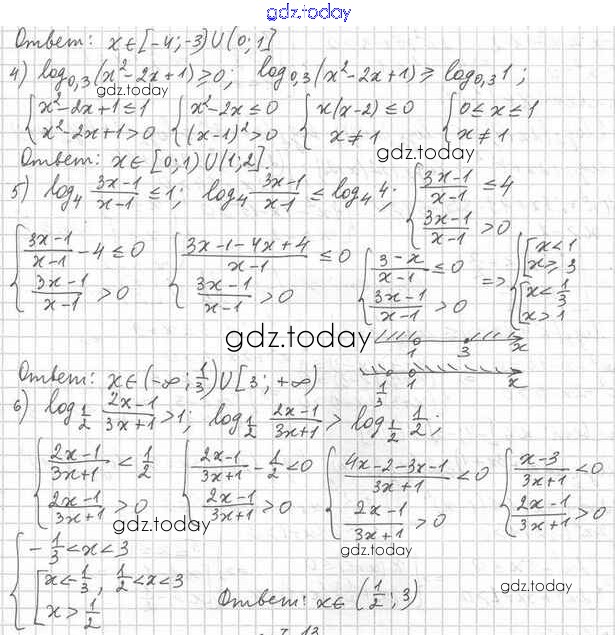 gdz.today
Ответ: x∈[-4;-3)∪(0;1]
4) log₀,₃(x²-2x+1)≥0; log₀,₃(x²-2x+1)≥log₀,₃1;
gdz.today
{x²-2x+1≤1 {x²-2x≤0 {x(x-2)≤0 {0≤x≤1
{x²-2x+1>0 {(x-1)²>0 {x≠1 {x≠1
gdz.today
Ответ: x∈[0;1)∪(1;2].
5) log₄ (3x-1)/(x-1) ≤1; log₄ (3x-1)/(x-1) ≤ log₄4; {(3x-1)/(x-1) ≤4
{(3x-1)/(x-1) >0
{(3x-1)/(x-1) -4≤0 {(3x-1-4x+4)/(x-1) ≤0 {(3-x)/(x-1) ≤0 => {[x<1
[x≥3
{(3x-1)/(x-1) >0 {(3x-1)/(x-1) >0 {(3x-1)/(x-1) >0 {[x<1/3
[x>1
gdz.today
1 3 x
1/3 1 x
Ответ: x∈(-∞;1/3)∪[3;+∞)
6) log_{1/2} (2x-1)/(3x+1) >1; log_{1/2} (2x-1)/(3x+1) > log_{1/2} 1/2;
{(2x-1)/(3x+1) < 1/2 {(2x-1)/(3x+1) - 1/2 <0 {(4x-2-3x-1)/(3x+1) <0 {(x-3)/(3x+1) <0
{(2x-1)/(3x+1) >0 {(2x-1)/(3x+1) >0 {(2x-1)/(3x+1) >0 {(2x-1)/(3x+1) >0
gdz.today
gdz.today
{-1/3<x<3
{[x<-1/3, 1/2<x<3
[x>1/2
Ответ: x∈(1/2;3)
gdz.today